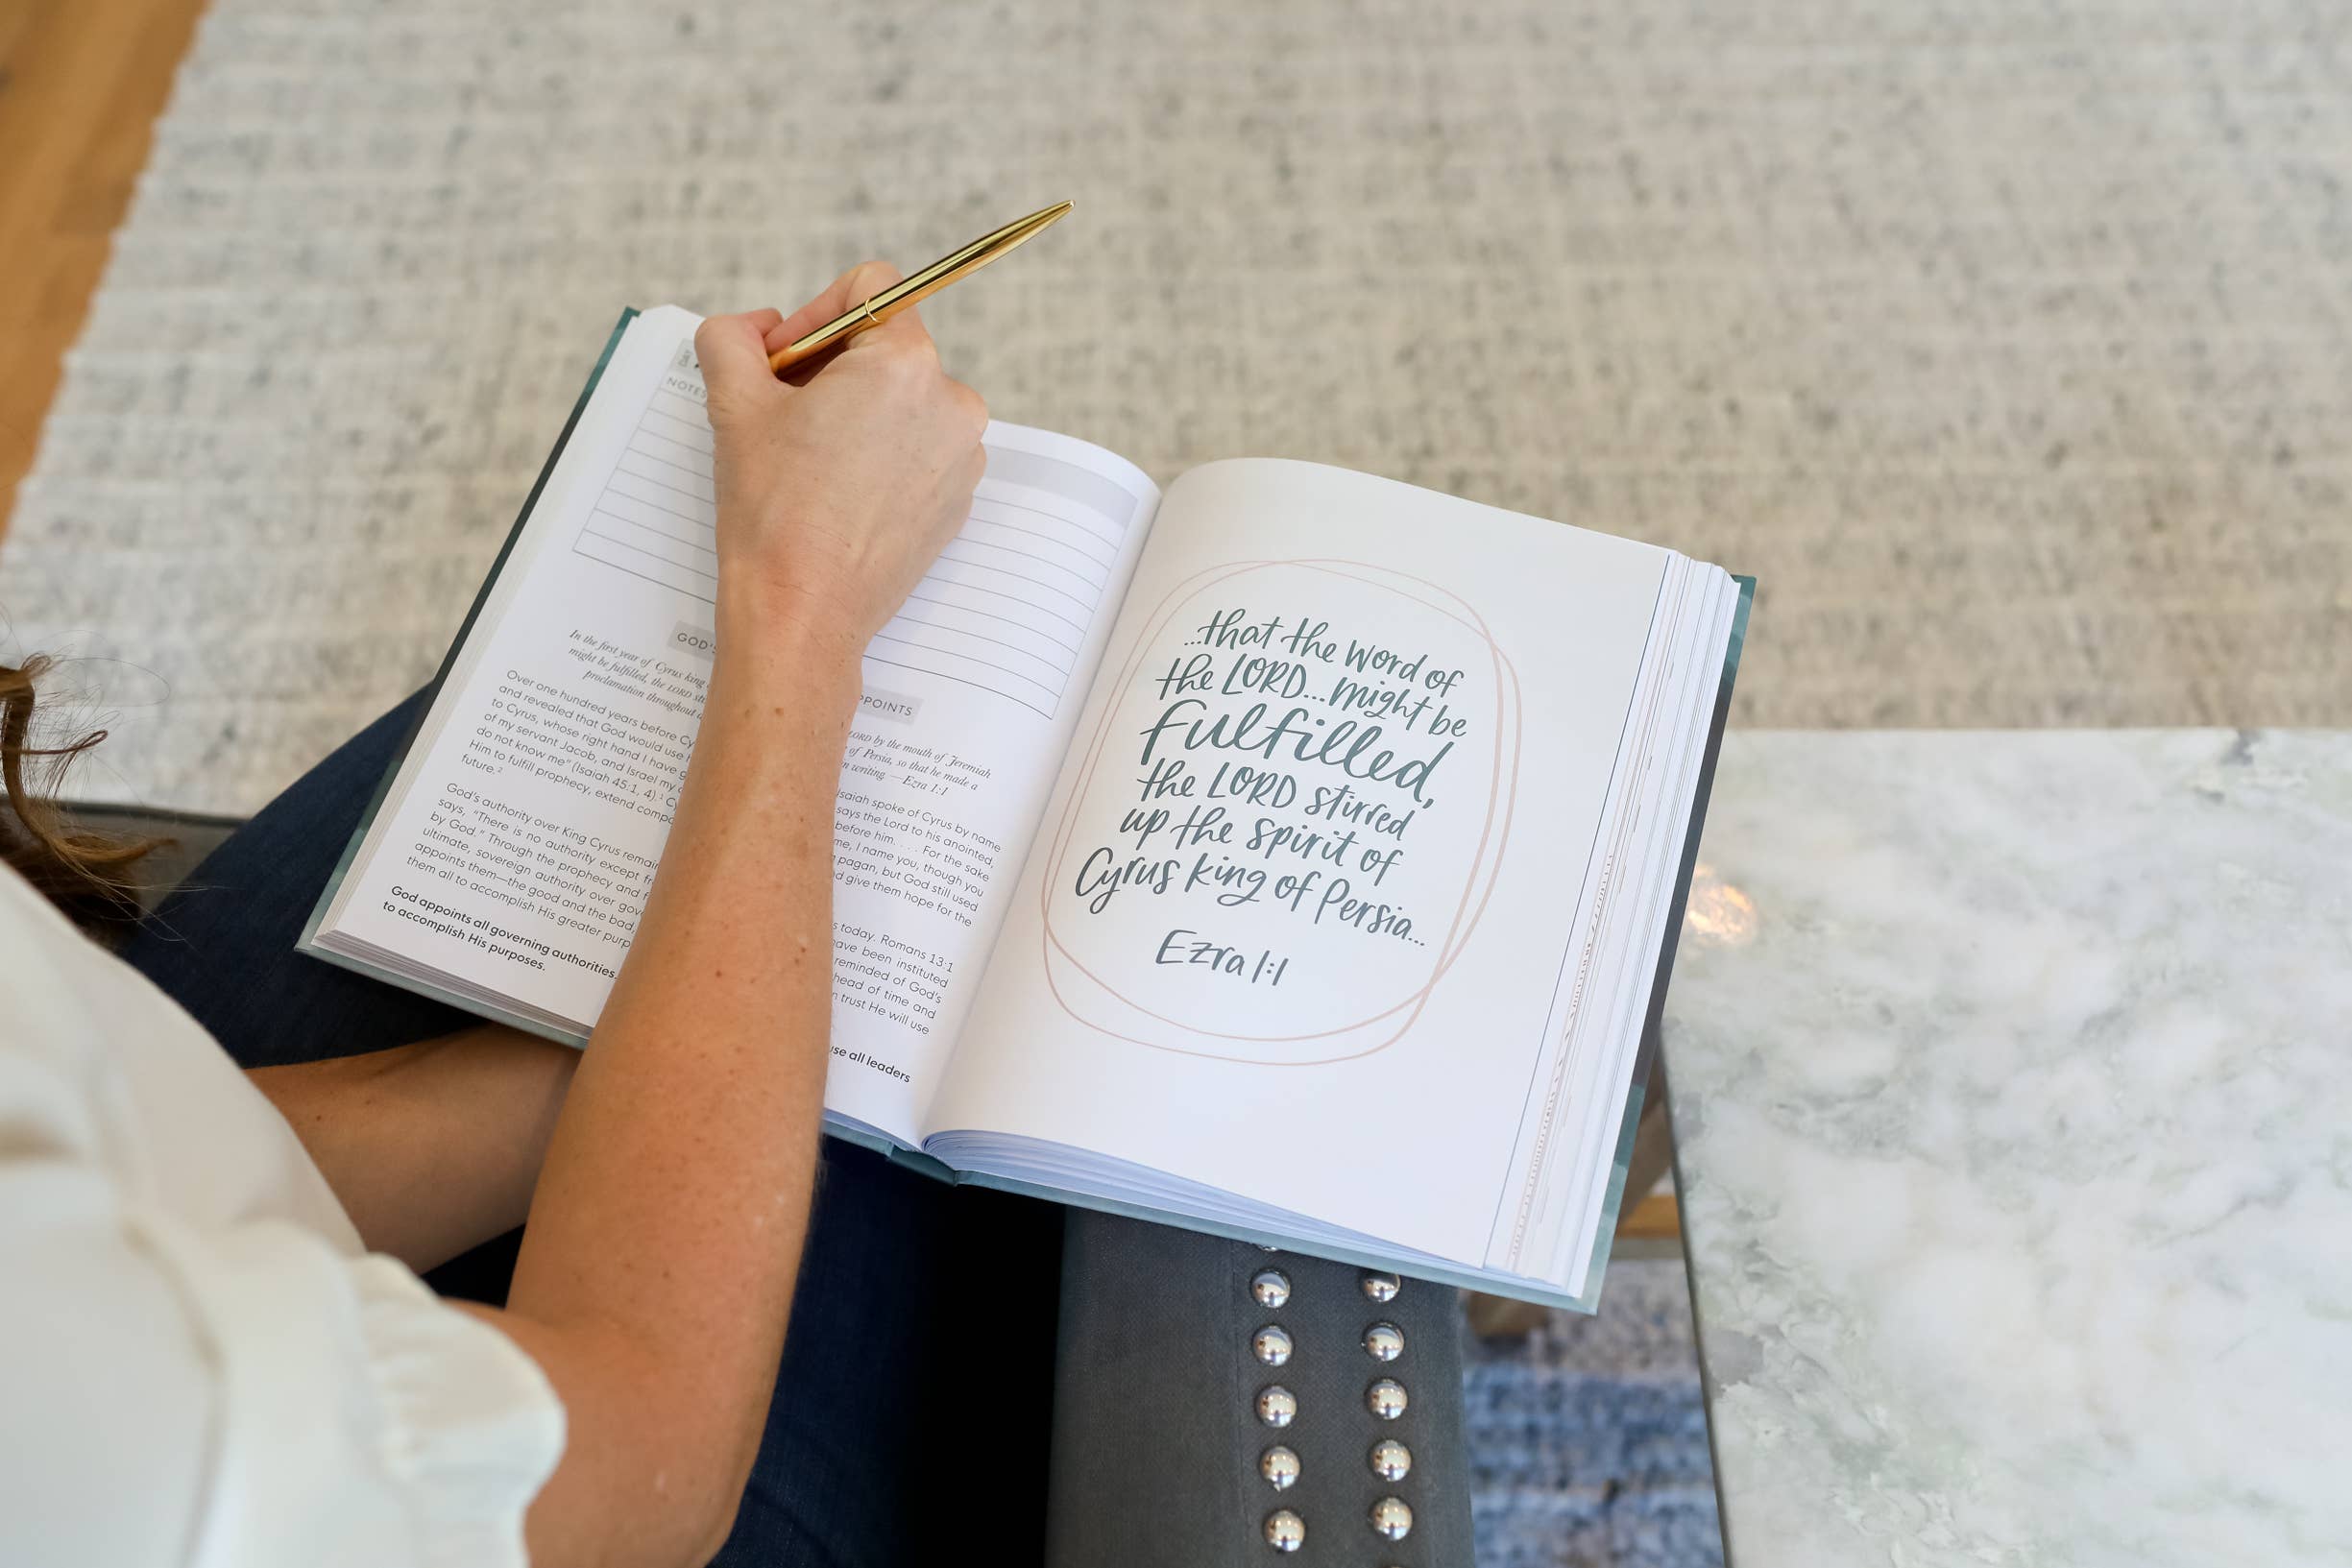 NOTES
GOD'S
PPOINTS
In the first year of Cyrus king
LORD by the mouth of Jeremiah
might be fulfilled, the LORD
of Persia, so that he made a
proclamation throughout
in writing. —Ezra 1:1
Over one hundred years before Cy
Isaiah spoke of Cyrus by name
and revealed that God would use
says the Lord to his anointed,
to Cyrus, whose right hand I have
before him. . . . For the sake
of my servant Jacob, and Israel my
me, I name you, though you
do not know me" (Isaiah 45:1, 4).¹
pagan, but God still used
Him to fulfill prophecy, extend
give them hope for the
future.²
God's authority over King Cyrus
today. Romans 13:1
says, "There is no authority except
have been instituted
by God." Through the prophecy and
reminded of God's
ultimate, sovereign authority over
ahead of time and
appoints them—the good and the bad,
trust He will use
them all to accomplish His greater
God appoints all governing authorities.
use all leaders
to accomplish His purposes.
...that the word of
the LORD...might be
fulfilled,
the LORD stirred
up the spirit of
Cyrus king of Persia...
Ezra 1:1